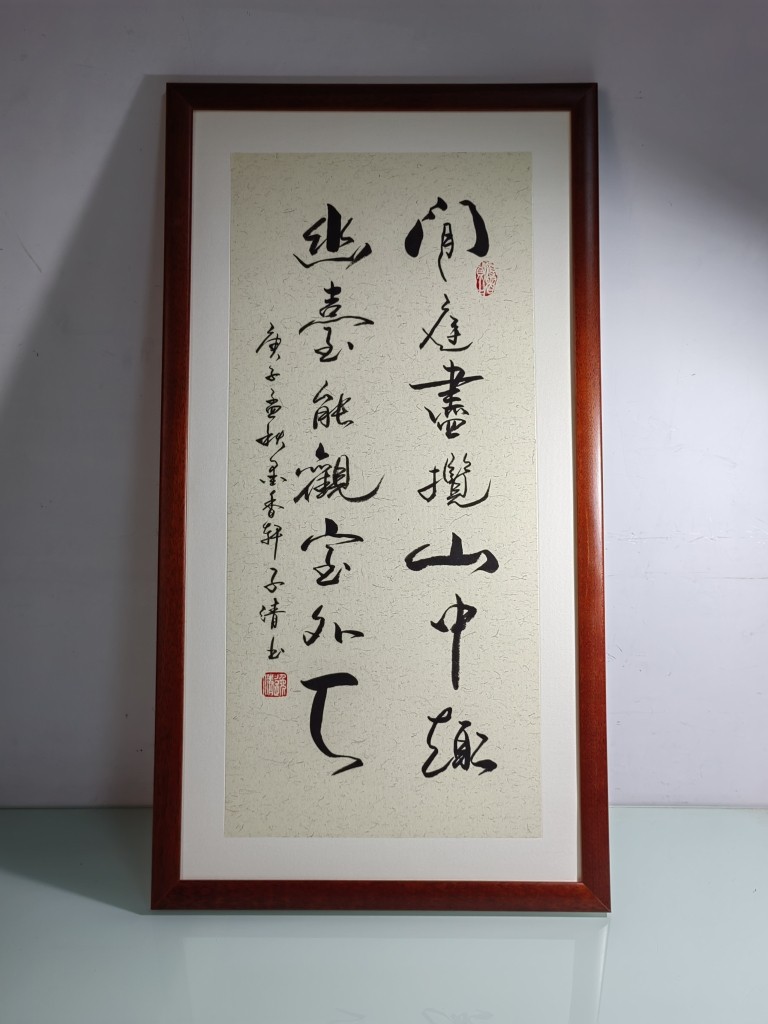 閒庭盡攬山中趣
幽臺能觀室外天
庚子孟秋墨香軒子清书